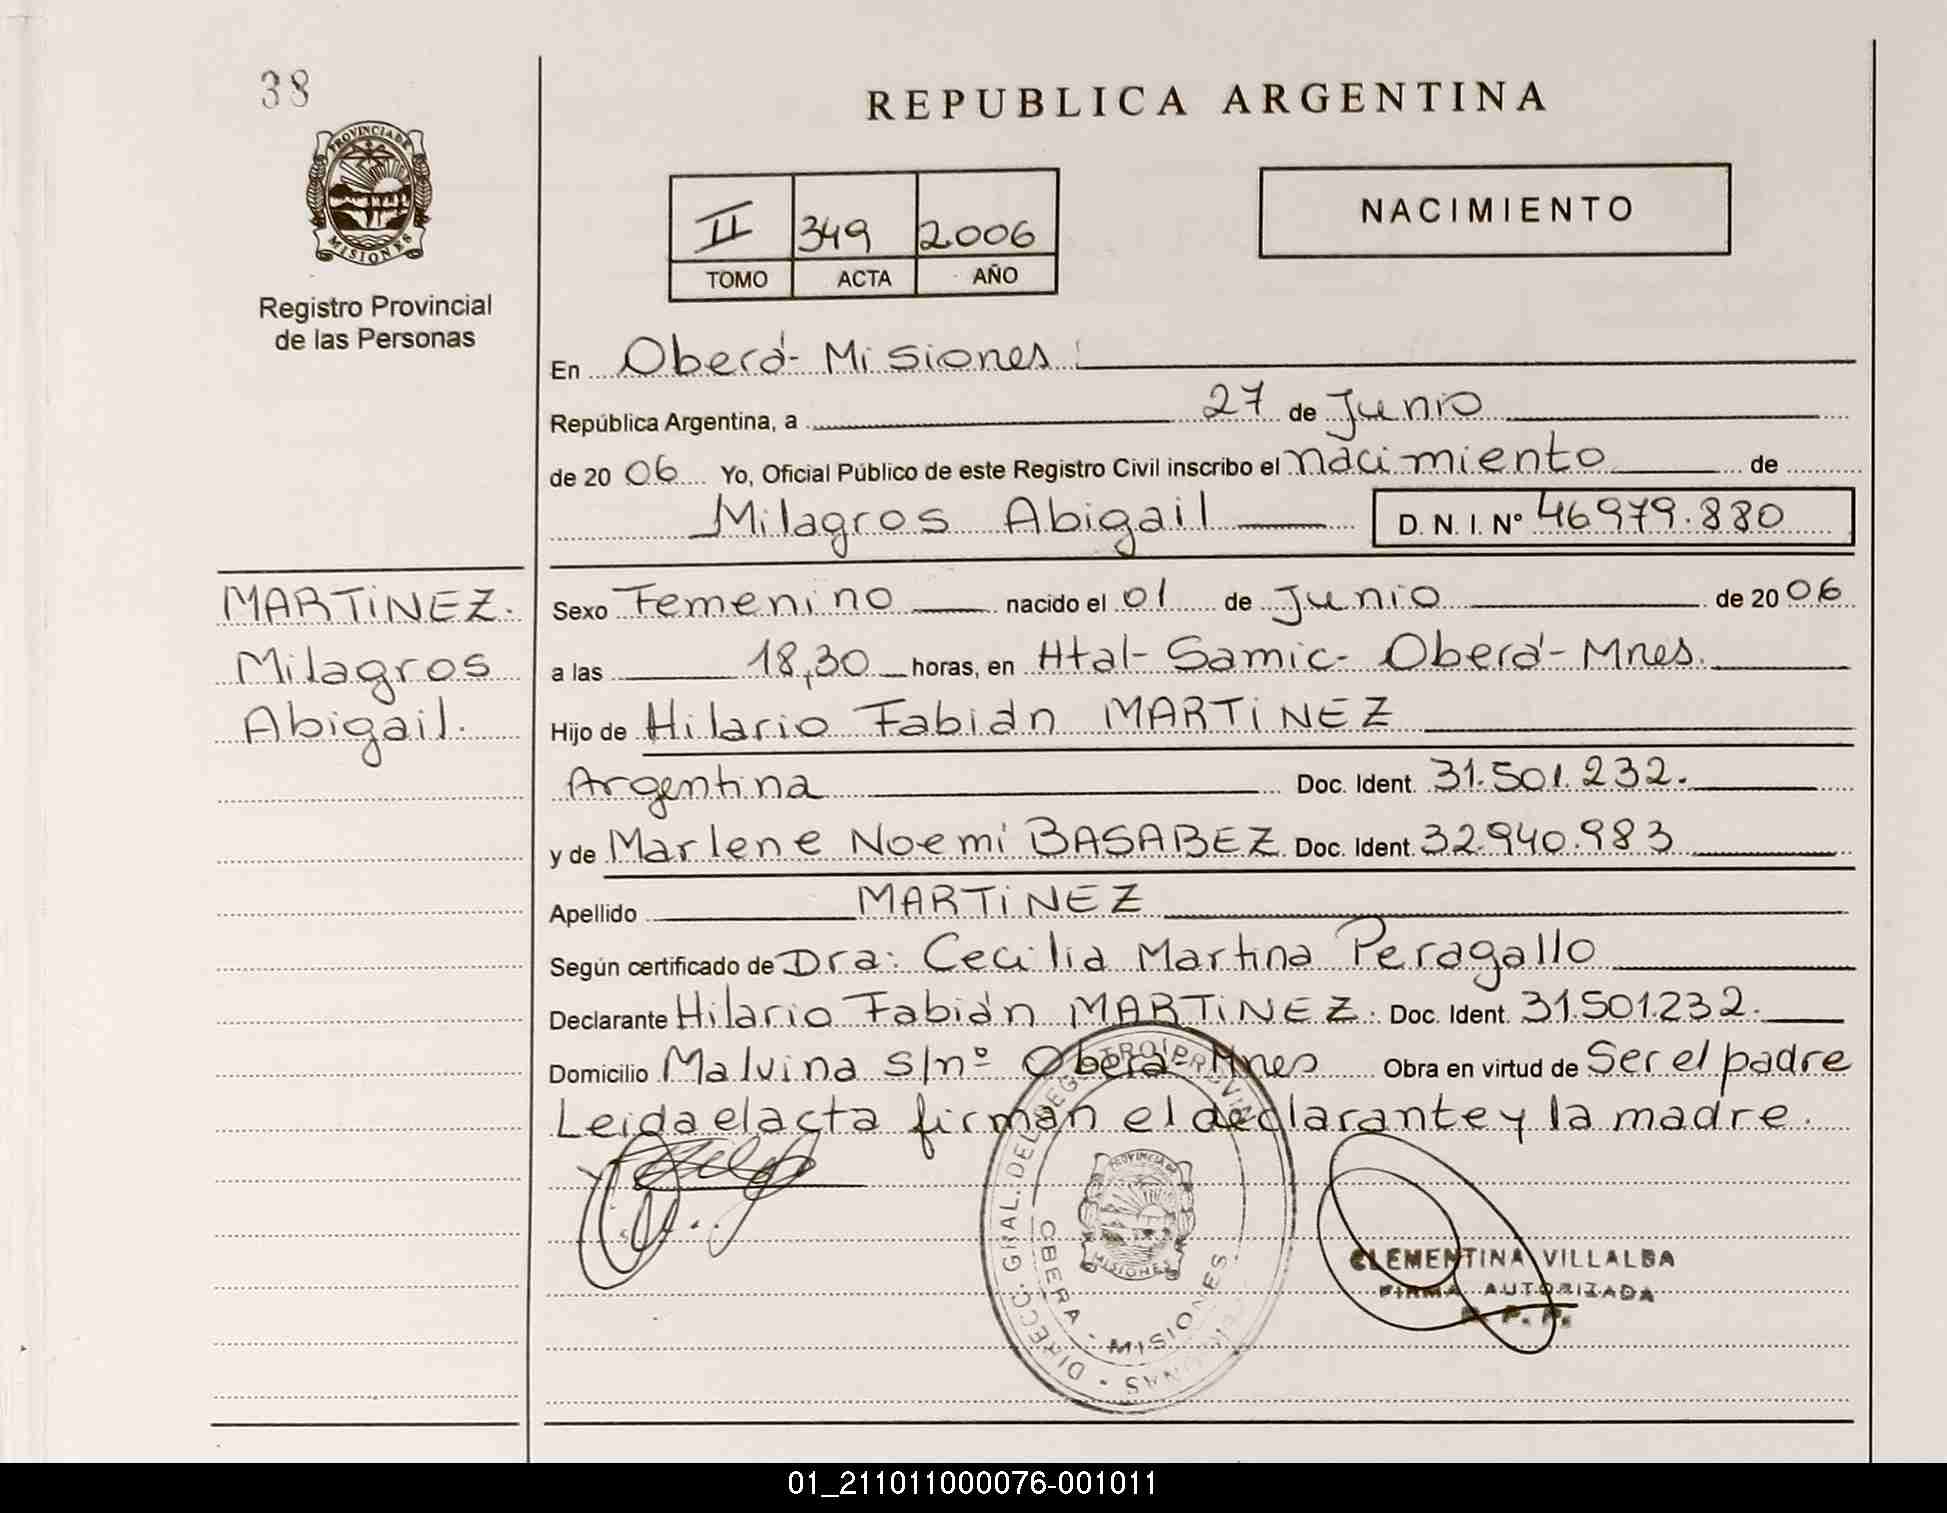 38
PROVINCIA DE
MISIONES
Registro Provincial
de las Personas
REPUBLICA ARGENTINA
II 349 2006
TOMO ACTA AÑO
NACIMIENTO
En Oberá- Misiones
República Argentina, a 27 de Junio
de 20 06 Yo, Oficial Público de este Registro Civil inscribo el nacimiento de
Milagros Abigail D. N. I. Nº 46979.880
MARTiNEZ.
Milagros
Abigail.
Sexo Femenino nacido el 01 de Junio de 20 06
a las 18,30 horas, en Htal- Samic- Oberá- Mnes.
Hijo de Hilario Fabián MARTiNEZ
Argentina Doc. Ident. 31.501.232.
y de Marlene Noemí BASABEZ Doc. Ident. 32.940.983
Apellido MARTiNEZ
Según certificado de Dra: Cecilia Martina Peragallo
Declarante Hilario Fabián MARTiNEZ. Doc. Ident. 31.501.232.
Domicilio Malvina s/nº Oberá- Mnes Obra en virtud de Ser el padre
Leida el acta firman el declarante y la madre.
DIRECC. GRAL. DEL REGISTRO PROVIN
PROVINCIA DE
MISIONES
OBERA - MISIONES
CLEMENTINA VILLALBA
FIRMA AUTORIZADA
01_211011000076-001011